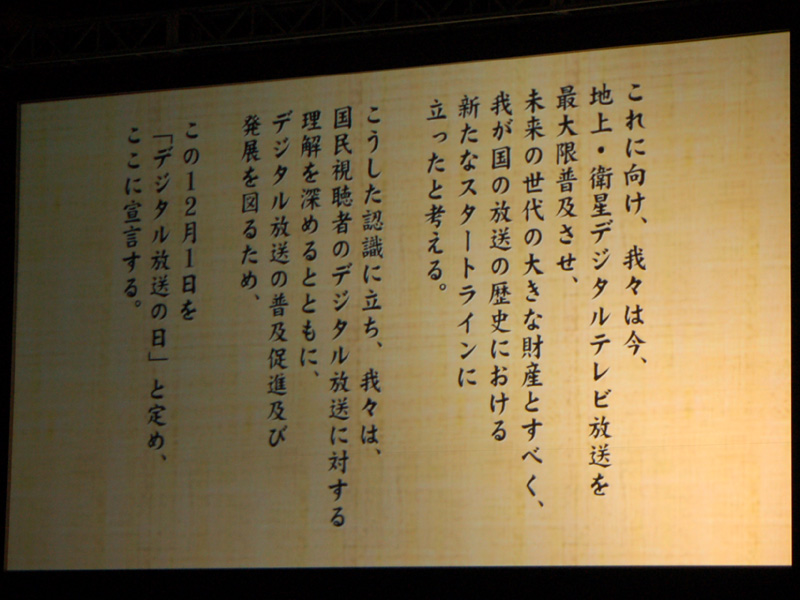 これに向け、我々は今、
地上・衛星デジタルテレビ放送を
最大限普及させ、
未来の世代の大きな財産とすべく、
我が国の放送の歴史における
新たなスタートラインに
立ったと考える。
こうした認識に立ち、我々は、
国民視聴者のデジタル放送に対する
理解を深めるとともに、
デジタル放送の普及促進及び
発展を図るため、
この12月1日を
「デジタル放送の日」と定め、
ここに宣言する。